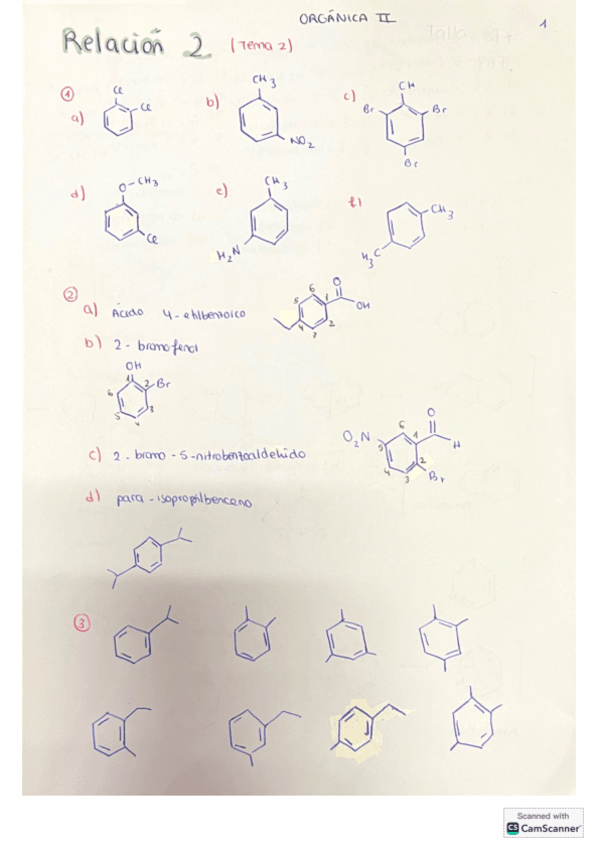 ORGÁNICA II
1
Relación 2 (Tema 2)
1
a)
Cl
Cl
b)
CH3
NO2
c)
CH
Br
Br
Br
d)
O-CH3
Cl
e)
CH3
H2N
f)
CH3
H3C
2
a) Ácido 4-etilbenzoico
O
OH
1
2
3
4
5
6
b) 2-bromofenol
OH
Br
1
2
3
4
5
6
c) 2-bromo-5-nitrobenzaldehido
O2N
O
H
Br
1
2
3
4
5
6
d) para-isopropilbenceno
3
Scanned with
CS CamScanner